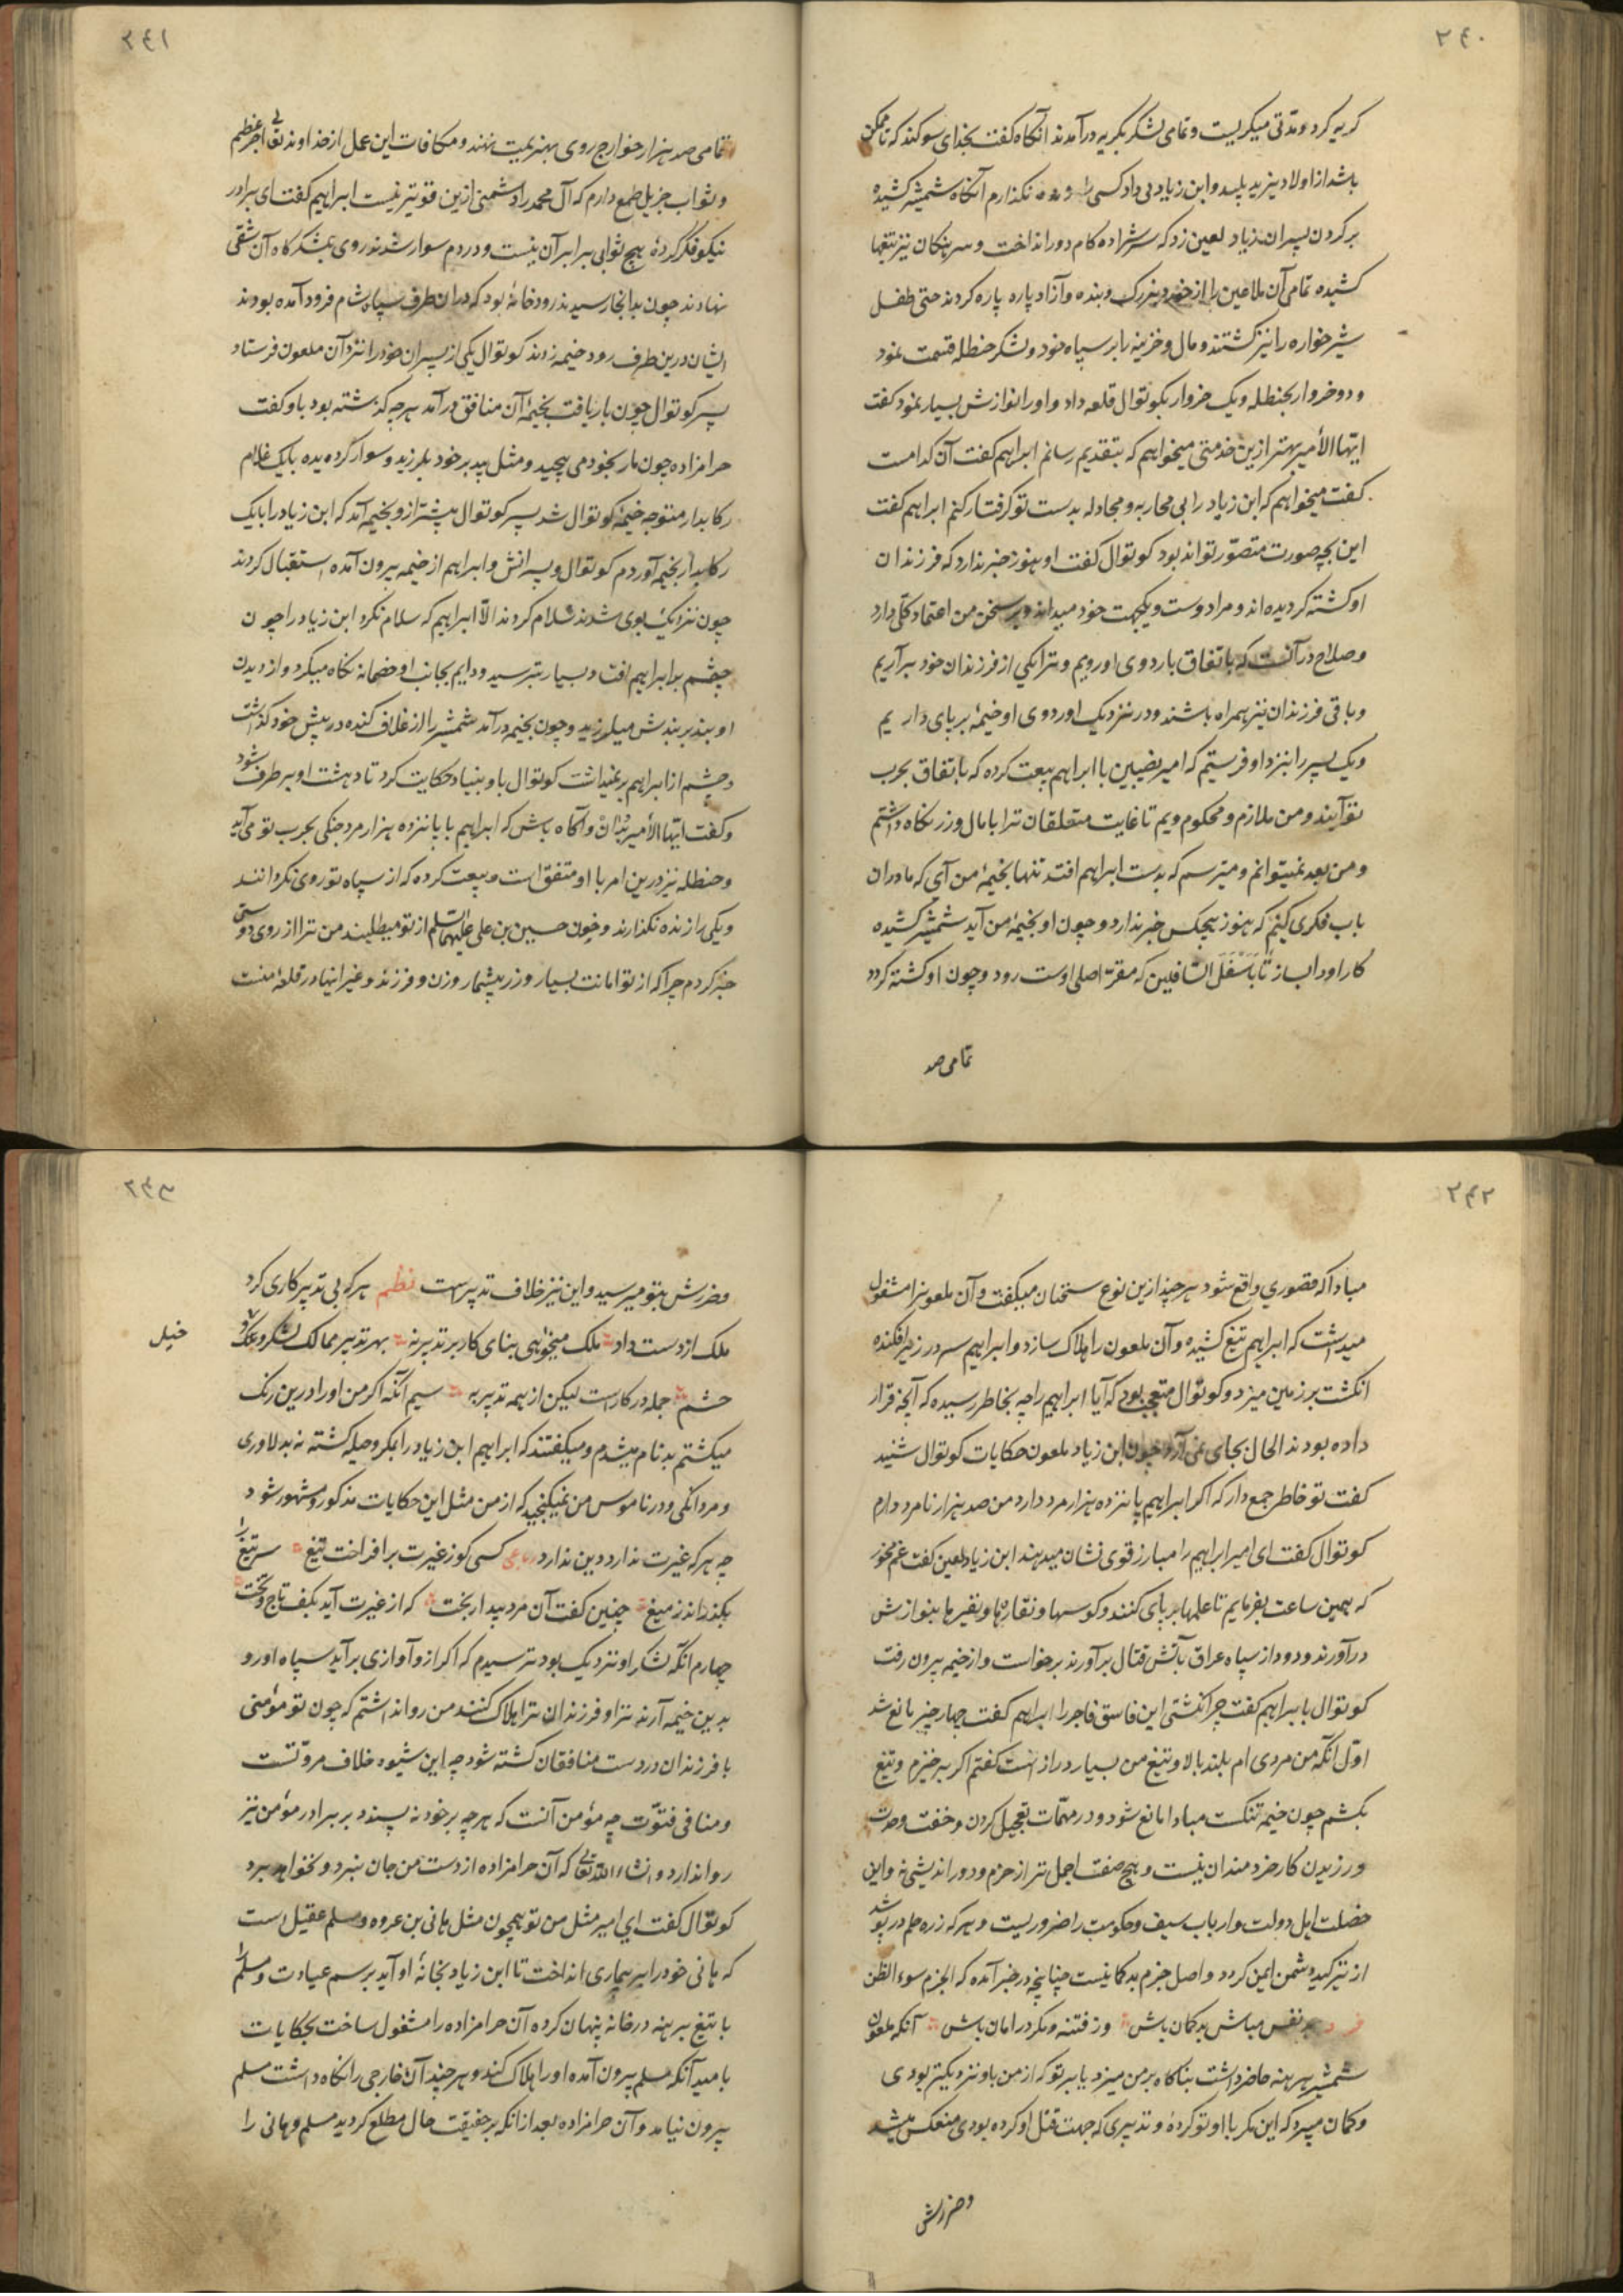 ۲۴۰
گریه کرد و مدتی میگریست و تمامی لشکر بگریه درآمدند آنگاه گفت بخدای سوگند که تا ممکن
باشد از اولاد یزید پلید و ابن زیاد بی داد کسی را زنده نگذارم آنگاه شمشیر کشیده
بر گردن پسران زیاد لعین زد که سرش ده کام دور انداخت و سرهنگان نیز تیغها
کشیده تمامی آن ملاعین را از خورد و بزرگ و بنده و آزاد پاره پاره کردند حتی طفل
شیرخواره را نیز کشتند و مال و خزینه را بر سپاه خود و لشکر حنظله قسمت نمود
و دو خروار بحنظله و یک خروار بکوتوال قلعه داد و او را نوازش بسیار نمود گفت
ایها الأمیر بهتر ازین خدمتی میخواهیم که بتقدیم رسانم ابراهیم گفت آن کدامست
گفت میخواهیم که ابن زیاد را بی محاربه و مجادله بدست تو گرفتار کنم ابراهیم گفت
این بچه صورت متصوّر تواند بود کوتوال گفت او هنوز خبر ندارد که فرزندان
او کشته گردیده اند و مرا دوست و یکجهت خود میداند و بر سخن من اعتماد کلّی دارد
و صلاح در آنست که باتفاق باردوی او رویم و ترا یکی از فرزندان خود برآریم
و باقی فرزندان نیز همراه باشند و در نزدیک اوردوی او خیمهٔ برپای داریم
و یک پسر را بنزد او فرستیم که امیر نصیبین با ابراهیم بیعت کرده که باتفاق بحرب
تو آیند و من ملازم و محکوم ویم تا غایت متعلقان ترا با مال و زر نگاه داشتم
و من بعد نمیتوانم و میترسم که بدست ابراهیم افتد تنها بخیمهٔ من آی که ما در ان
باب فکری کنیم که هنوز هیچکس خبر ندارد و چون او بخیمهٔ من آید شمشیر کشیده
کار او را بساز تا باسفل السّافلین که مقرّ اصلی اوست رود و چون او کشته گردد
تمامی صد
۲۴۱
تمامی صد هزار خوارج روی بهزیمت نهند و مکافات این عمل از خداوند تعالی اجر عظیم
و ثواب جزیل طمع دارم که آل محمد را دشمنی ازین قوی‌تر نیست ابراهیم گفت ای برادر
نیکو فکر کردهٔ هیچ ثوابی برابر آن نیست و در دم سوار شدند روی بلشکرگاه آن شقی
نهادند چون بدانجا رسیدند رودخانهٔ بود که در ان طرف سپاه شام فرود آمده بودند
ایشان درین طرف رود خیمه زدند کوتوال یکی از پسران خود را نزد آن ملعون فرستاد
پسر کوتوال چون بار یافت بخیمهٔ آن منافق درآمد هرچه گذشته بود باو گفت
حرامزاده چون مار بخود می پیچید و مثل بید بر خود بلرزید و سوار گردیده با یک غلام
رکابدار متوجه خیمهٔ کوتوال شد پسر کوتوال پیشتر از و بخیمه آمد که ابن زیاد را با یک
رکابدار بخیمه آوردم کوتوال و پسرانش و ابراهیم از خیمه بیرون آمده استقبال کردند
چون نزدیک بوی شدند سلام کردند الّا ابراهیم که سلام نکرد ابن زیاد را چون
چشم بر ابراهیم افتاد بسیار بترسید و دایم بجانب او خصمانه نگاه میکرد و از دیدن
او بند بر بندش میلرزید و چون بخیمه درآمد شمشیر را از غلاف کنده در پیش خود گذاشت
و چشم از ابراهیم بر نمیداشت کوتوال باو بنیاد حکایت کرد تا دهشت او بر طرف شود
و گفت ایها الأمیر بدان و آگاه باش که ابراهیم با پانزده هزار مرد جنگی بحرب تو می آید
و حنظله نیز درین امر با او متفق است و بیعت کرده که از سپاه تو روی نگردانند
و یکی را زنده نگذارند و خون حسین بن علی علیهما السّلم از تو میطلبند من ترا از روی دوستی
خبر کردم چرا که از تو امانت بسیار و زر بیشمار و زن و فرزند و غیر اینها در قلعهٔ منست
۲۴۲
مبادا که قصوری واقع شود هرچند ازین نوع سخنان میگفت و آن ملعونرا مشغول
میداشت که ابراهیم تیغ کشیده و آن ملعون را هلاک سازد و ابراهیم سر در زیر افکنده
انگشت بر زمین میزد و کوتوال متعجب بود که آیا ابراهیم را چه بخاطر رسیده که آنچه قرار
داده بودند الحال بجای نمی آرد چون ابن زیاد ملعون حکایات کوتوال شنید
گفت تو خاطر جمع دار که اگر ابراهیم پانزده هزار مرد دارد من صد هزار نامرد دارم
کوتوال گفت ای امیر ابراهیم را مبارز قوی نشان میدهند ابن زیاد لعین گفت غم مخور
که همین ساعت بفرمایم تا علمها بر پای کنند و کوسها و نقاره‌ها و نفیرها بنوازش
درآورند و دود از سپاه عراق بآتش قتال برآورند برخواست و از خیمه بیرون رفت
کوتوال بابراهیم گفت چرا نکشتی این فاسق فاجر را ابراهیم گفت چهار چیز مانع شد
اوّل آنکه من مردی ام بلند بالا و تیغ من بسیار دراز است گفتم اگر برخیزم و تیغ
بکشم چون خیمه تنگست مبادا مانع شود و در مهمّات تعجیل کردن و خفت و حدت
ورزیدن کار خردمندان نیست و هیچ صفت اجمل‌تر از حزم و دوراندیشی نه و این
خصلت اهل دولت و ارباب سیف و حکومت را ضروریست و هر که زره حلم در پوشد
از تیر کید دشمن ایمن گردد و اصل حزم بدگمانیست چنانچه در خبر آمده که الحزم سوء الظن
فرد بد نفس مباش بد گمان باش وز فتنه و مکر در امان باش آنکه ملعون
شمشیر برهنه حاضر داشت بناگاه بر من میزد یا بر تو که از من باو نزدیکتر بودی
و گمان میبرد که این مکر با او تو کردهٔ و تدبیری که جهت قتل او کرده بودی منعکس میشد
و ضررش
۲۴۳
و ضررش بتو میرسید و این نیز خلاف تدبیر است نظم هر که بی تدبیر کاری کرد
ملک از دست داد ملک میخواهی بنای کار بر تدبیر نه بهر تدبیر ممالک لشکر و
خیل
حشم جمله در کارست لیکن از همه تدبیر به سیم آنکه اگر من او را درین رنگ
میکشتم بدنام میشدم و میگفتند که ابراهیم ابن زیاد را بمکر و حیله کشته نه بدلاوری
و مردانگی و در ناموس من نمیگنجید که از من مثل این حکایات مذکور و مشهور شود
چه هر که غیرت ندارد دین ندارد رباعی کسی کوز غیرت برافراخت تیغ سر تیغ را
بگذراند ز میغ چنین گفت آن مرد بیدار بخت که از غیرت آید بکف تاج و تخت
چهارم آنکه لشکر او نزدیک بود ترسیدم که اگر از و آوازی برآید سپاه او رو
بدین خیمه آرند ترا و فرزندان ترا هلاک کنند من روا نداشتم که چون تو مؤمنی
با فرزندان در دست منافقان کشته شود چه این شیوه خلاف مروّتست
و منافی فتوّت چه مؤمن آنست که هرچه بر خود نپسندد بر برادر مؤمن نیز
روا ندارد و انشاء الله تعالی که آن حرامزاده از دست من جان نبرد و نخواهد برد
کوتوال گفت ای امیر مثل من تو همچون مثل هانی بن عروه و مسلم عقیل است
که هانی خود را بر بیماری انداخت تا ابن زیاد بخانهٔ او آید برسم عیادت و مسلم را
با تیغ برهنه در خانه پنهان کرده آن حرامزاده را مشغول ساخت بحکایات
بامید آنکه مسلم بیرون آمده او را هلاک کند و هر چند آن خارجی را نگاه داشت مسلم
بیرون نیامد و آن حرامزاده بعد از آنکه بر حقیقت حال مطلع گردید مسلم و هانی را